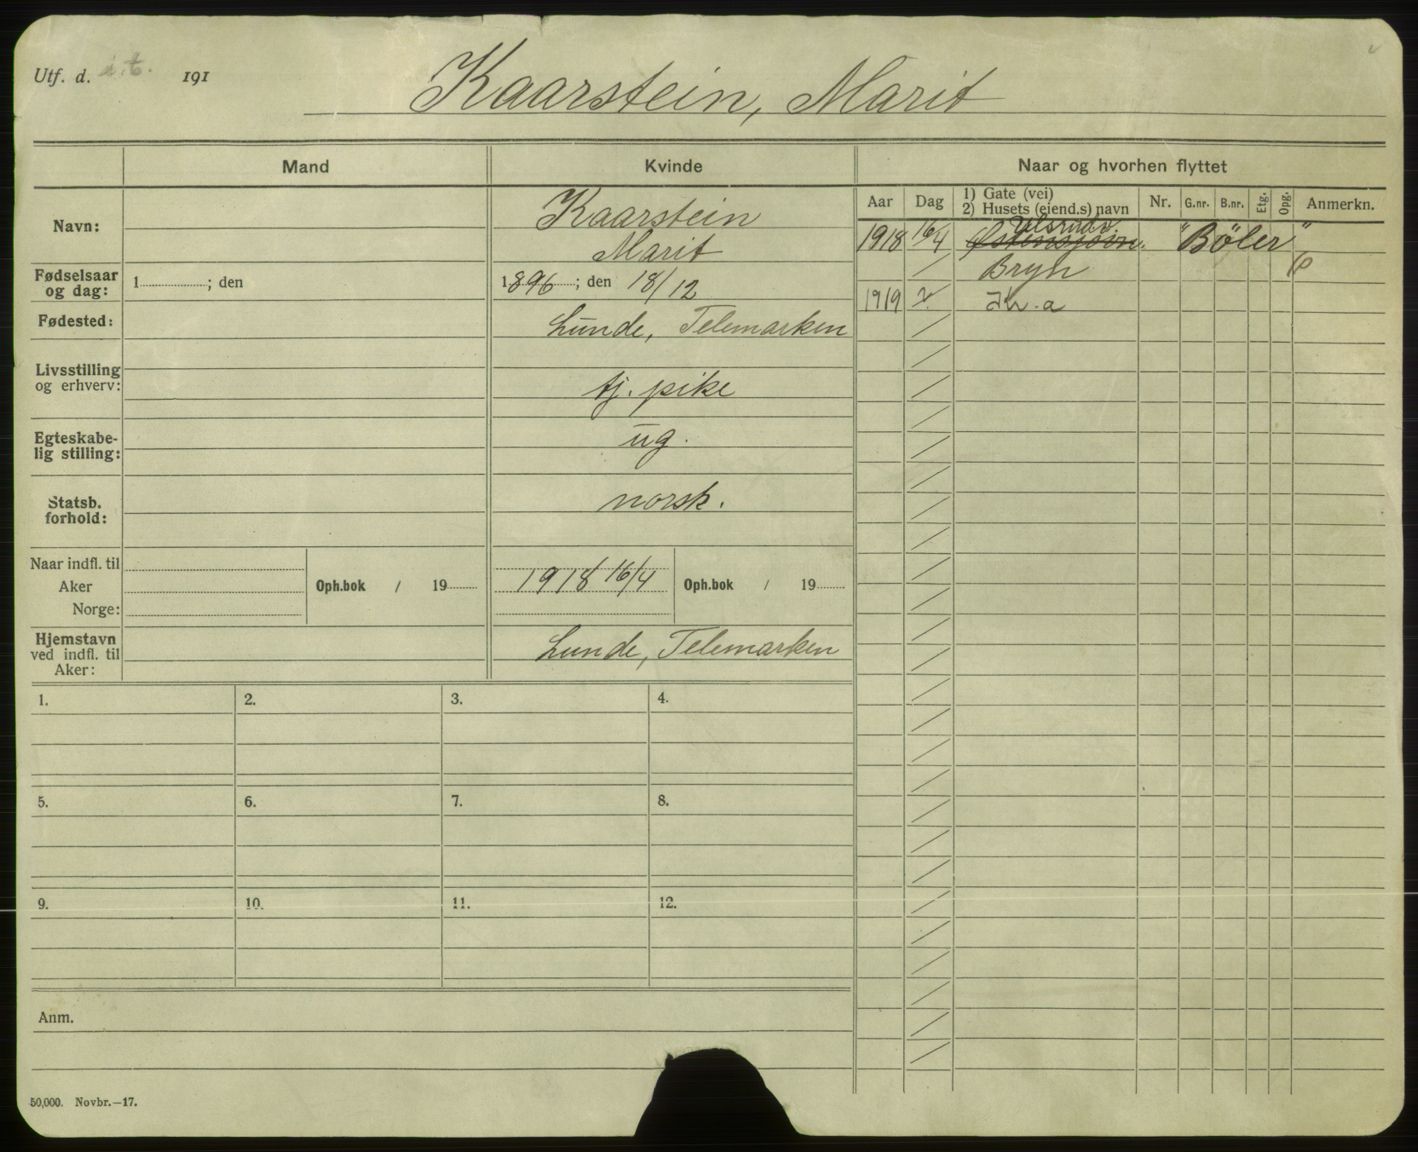 Utf. d. i.t. 191
Kaarstein, Marit
Mand
Kvinde
Naar og hvorhen flyttet
Navn:
Kaarstein
Marit
Fødselsaar
og dag:
1 ; den
1896 ; den 18/12
Fødested:
Lunde, Telemarken
Livsstilling
og erhverv:
tj. pike
Egteskabe-
lig stilling:
ug.
Statsb.
forhold:
norsk.
Naar indfl. til
Aker
Norge:
Oph.bok / 19
1918 16/4
Oph.bok / 19
Hjemstavn
ved indfl. til
Aker:
Lunde, Telemarken
Aar
Dag
1) Gate (vei)
2) Husets (eiend.s) navn
Nr.
G.nr.
B.nr.
Etg.
Opg.
Anmerkn.
Ulsrudv.
1918 16/4 Østensjøvn. "Bøler"
Bryn
1919
1. 2. 3. 4.
5. 6. 7. 8.
9. 10. 11. 12.
Anm.
50,000. Novbr.—17.